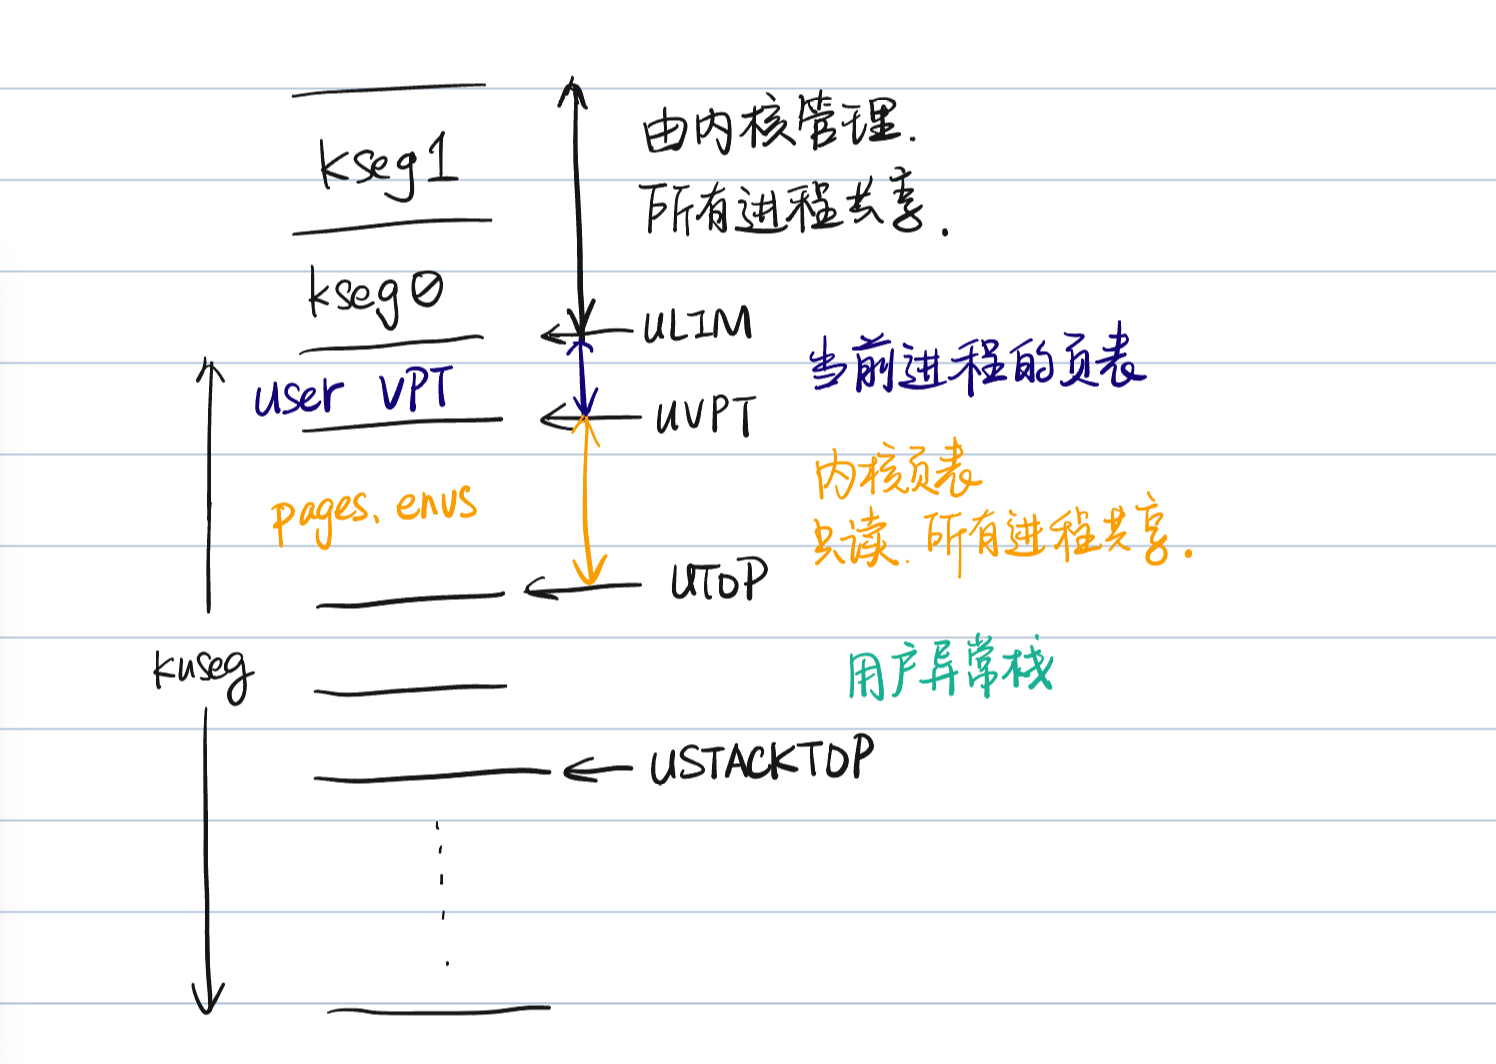 kseg1
由内核管理.
所有进程共享.
kseg0
ULIM
user VPT
当前进程的页表
UVPT
pages、envs
内核页表
只读.所有进程共享.
UTOP
kuseg
用户异常栈
USTACKTOP